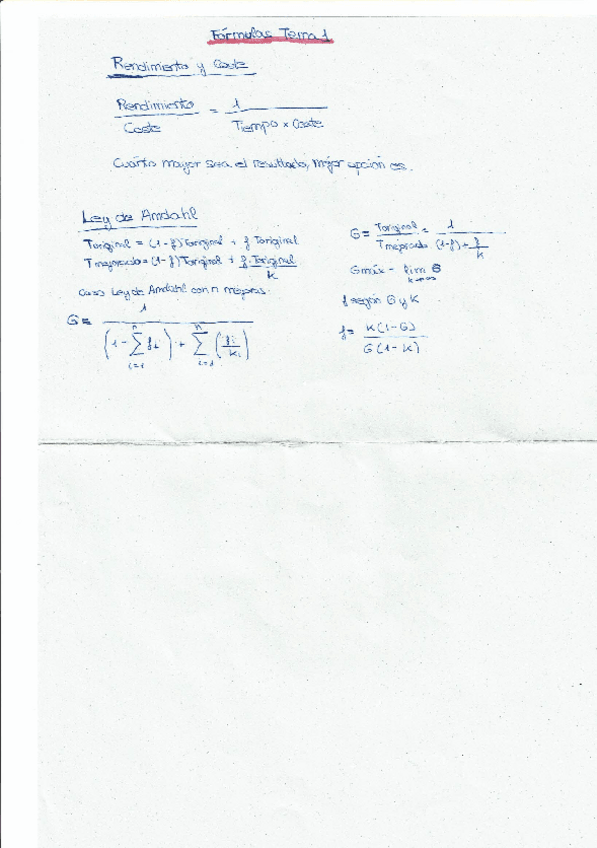 Fórmulas Tema 1
Rendimiento y Coste
Rendimiento / Coste = 1 / Tiempo × Coste
Cuánto mayor sea el resultado, mejor opción es.
Ley de Amdahl
Toriginal = (1-f) Toriginal + f Toriginal
Tmejorado = (1-f) Toriginal + f·Toriginal / k
Caso Ley de Amdahl con n mejoras:
G = 1 / (1 - ∑ i=1 n fi) + ∑ i=1 n (fi / ki)
G = Toriginal / Tmejorado = 1 / (1-f) + f/k
Gmáx = lim k→∞ G
f según G y K
f = K(1-G) / G(1-K)